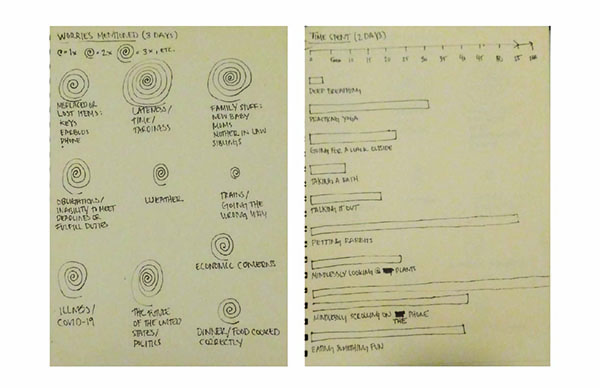 WORRIES MENTIONED (3 DAYS)
= 1x = 2x = 3x, ETC.
MISPLACED OR
LOST ITEMS:
KEYS
EARBUDS
PHONE
LATENESS/
TIME/
TARDINESS
FAMILY STUFF:
NEW BABY
MOMS
MOTHER IN LAW
SIBLINGS
OBLIGATIONS/
INABILITY TO MEET
DEADLINES OR
FULFILL DUTIES
WEATHER
TRAINS/
GOING THE
WRONG WAY
ECONOMIC CONCERNS
ILLNESS/
COVID-19
THE FUTURE
OF THE UNITED
STATES/
POLITICS
DINNER/FOOD COOKED
CORRECTLY
TIME SPENT (2 DAYS)
DEEP BREATHING
PRACTICING YOGA
GOING FOR A WALK OUTSIDE
TAKING A BATH
TALKING IT OUT
PETTING RABBITS
MINDLESSLY LOOKING @ PLANTS
MINDLESSLY SCROLLING ON THE PHONE
EATING SOMETHING FUN